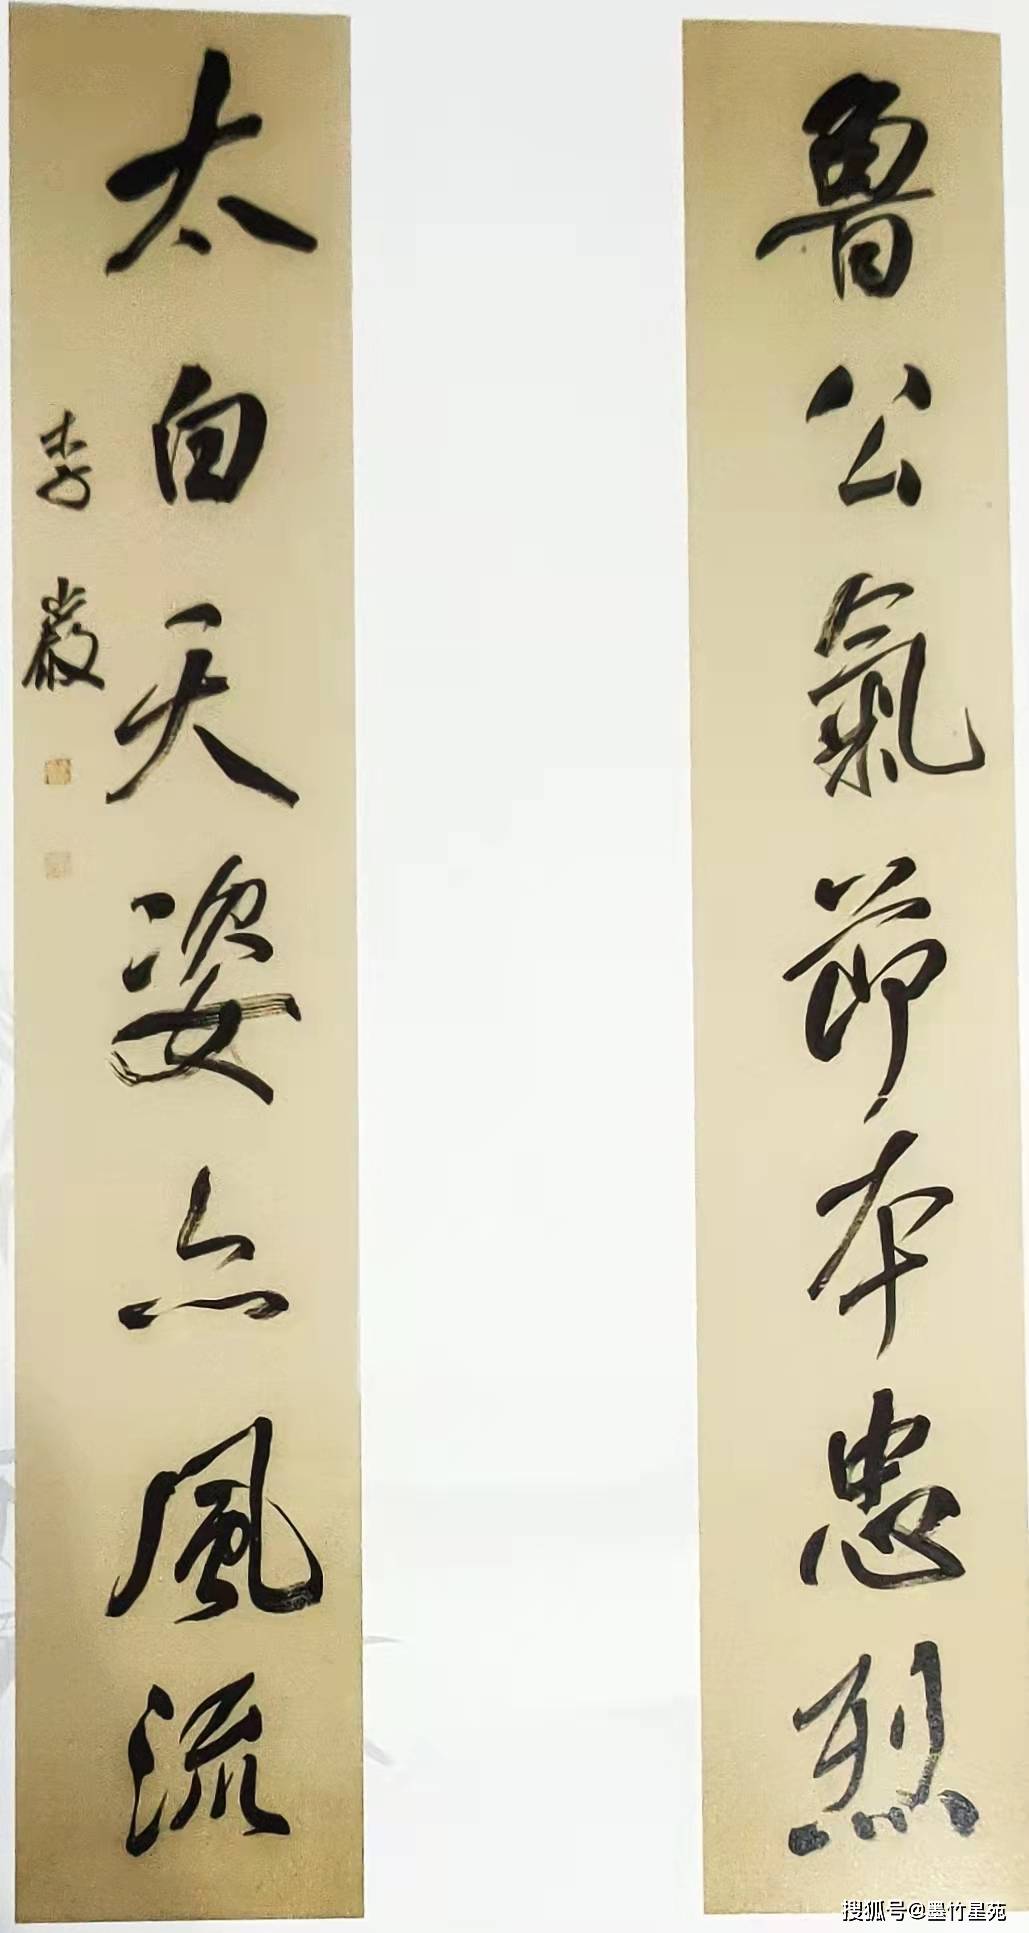 魯公氣節本忠烈
太白天姿亦風流
李嚴
搜狐号@墨竹星苑